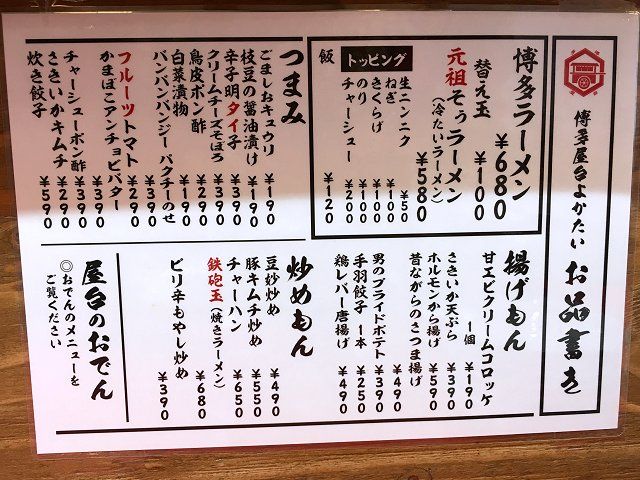 博多屋台よかたい お品書き
博多ラーメン ¥680
替え玉 ¥100
元祖そぅラーメン
(冷たいラーメン) ¥580
トッピング
生ニンニク ¥50
ねぎ ¥100
きくらげ ¥100
のり ¥100
チャーシュー ¥200
飯 ¥120
つまみ
ごましおキュウリ ¥190
枝豆の醤油漬け ¥190
辛子明タイ子 ¥390
クリームチーズそぼろ ¥390
鳥皮ポン酢 ¥290
白菜漬物 ¥190
バンバンバンジー パクチーのせ ¥390
フルーツトマト ¥290
かまぼこアンチョビバター ¥390
チャーシューポン酢 ¥390
さきいかキムチ ¥290
炊き餃子 ¥590
揚げもん
甘エビクリームコロッケ
1個 ¥190
さきいか天ぷら ¥390
ホルモンから揚げ ¥590
昔ながらのさつま揚げ ¥490
男のプライドポテト ¥390
手羽餃子 1本 ¥250
鶏レバー唐揚げ ¥490
炒めもん
豆妙炒め ¥490
豚キムチ炒め ¥550
チャーハン ¥650
鉄砲玉(焼きラーメン) ¥680
ピリ辛もやし炒め ¥390
屋台のおでん
◎おでんのメニューを
ご覧ください